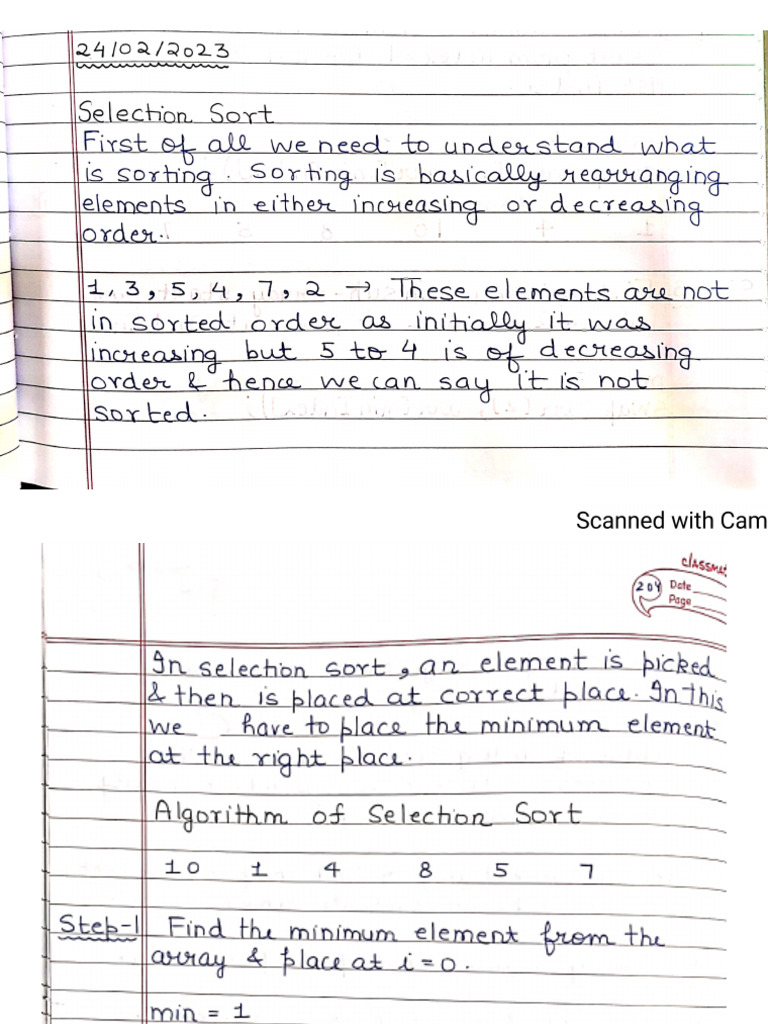 24/02/2023
Selection Sort
First of all we need to understand what
is sorting. Sorting is basically rearranging
elements in either increasing or decreasing
order.
1, 3, 5, 4, 7, 2 → These elements are not
in sorted order as initially it was
increasing but 5 to 4 is of decreasing
order & hence we can say it is not
sorted.
Scanned with Cam
classmat
204 Date
Page
In selection sort, an element is picked
& then is placed at correct place. In this
we have to place the minimum element
at the right place.
Algorithm of Selection Sort
10 1 4 8 5 7
Step-1 Find the minimum element from the
array & place at i=0.
min = 1